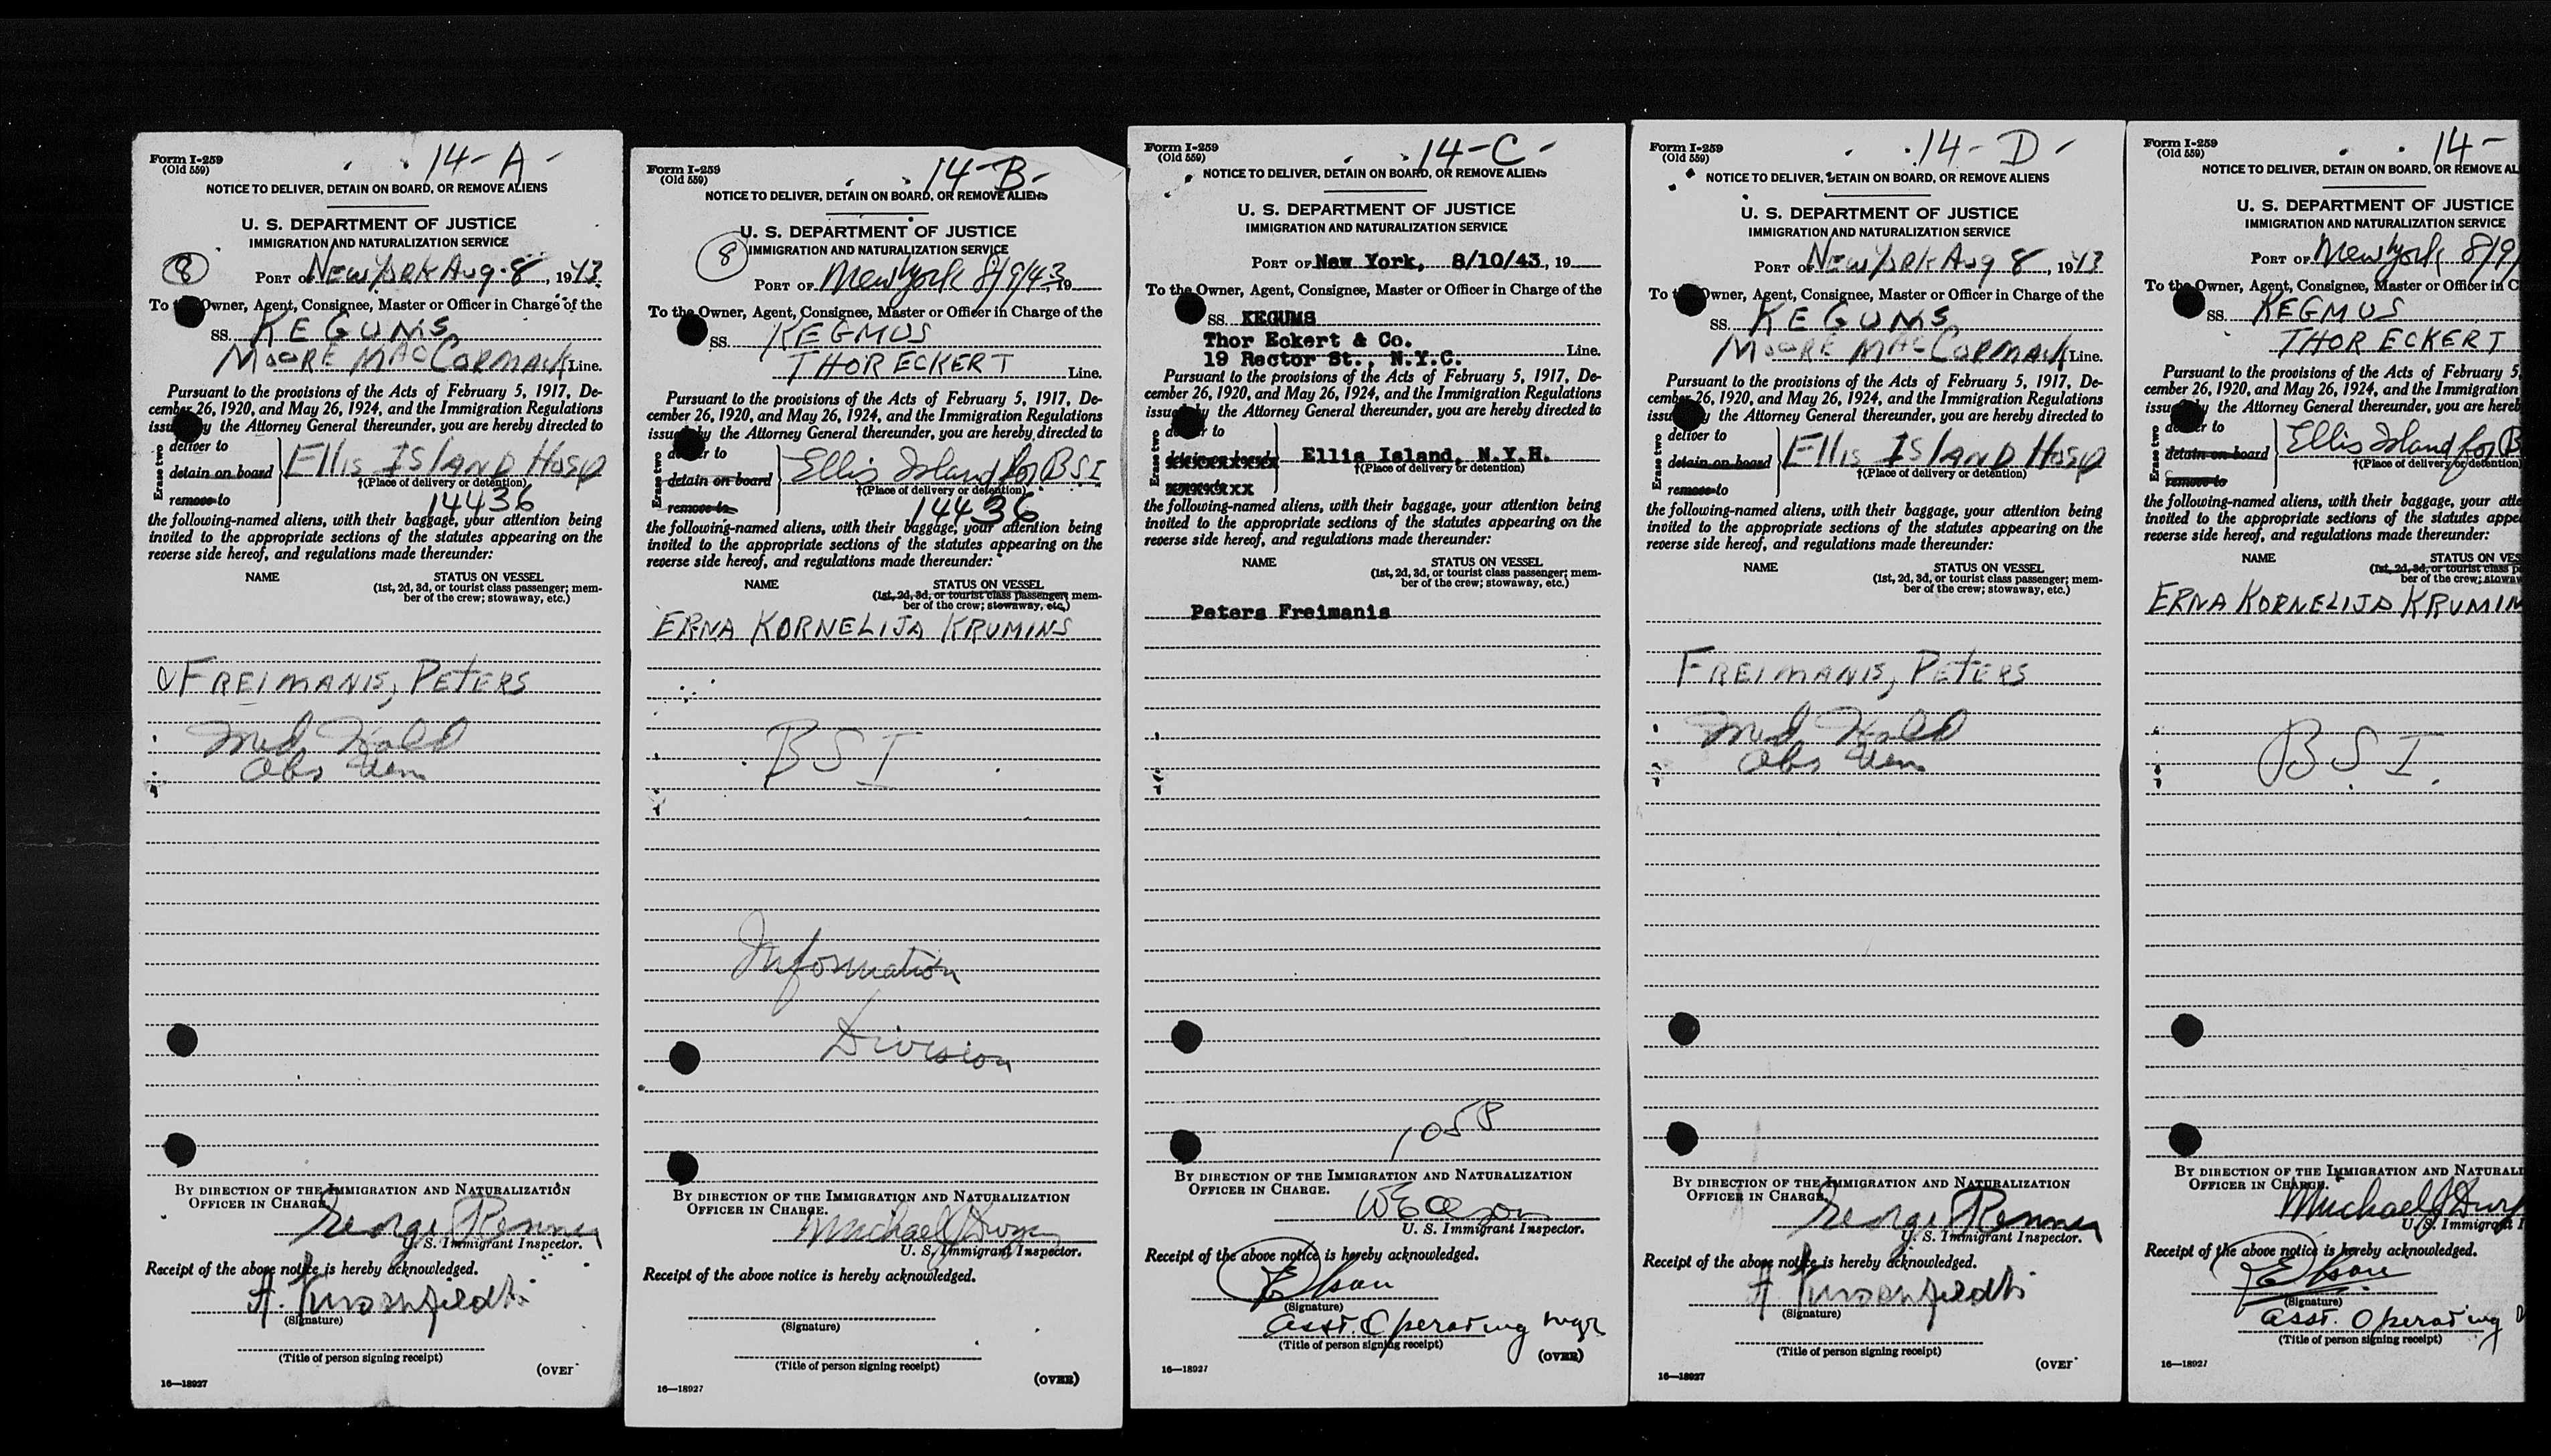 14-A-
Form I-259
(Old 559)
NOTICE TO DELIVER, DETAIN ON BOARD, OR REMOVE ALIENS
U. S. DEPARTMENT OF JUSTICE
IMMIGRATION AND NATURALIZATION SERVICE
8
PORT OF New York Aug. 8, 1943
To the Owner, Agent, Consignee, Master or Officer in Charge of the
SS. KEGUMS
MOORE MACCORMACK Line.
Pursuant to the provisions of the Acts of February 5, 1917, De-
cember 26, 1920, and May 26, 1924, and the Immigration Regulations
issued by the Attorney General thereunder, you are hereby directed to
Erase two
deliver to
detain on board
remove to
Ellis ISLAND Hosp
†(Place of delivery or detention)
14436
the following-named aliens, with their baggage, your attention being
invited to the appropriate sections of the statutes appearing on the
reverse side hereof, and regulations made thereunder:
NAME STATUS ON VESSEL
(1st, 2d, 3d, or tourist class passenger; mem-
ber of the crew; stowaway, etc.)
FREIMANIS, PETERS
Med Hold
Obs Ven
BY DIRECTION OF THE IMMIGRATION AND NATURALIZATION
OFFICER IN CHARGE.
George Renner
U. S. Immigrant Inspector.
Receipt of the above notice is hereby acknowledged.
A.
(Signature)
(Title of person signing receipt)
(OVER
16—18927
14-B-
Form I-259
(Old 559)
NOTICE TO DELIVER, DETAIN ON BOARD, OR REMOVE ALIENS
U. S. DEPARTMENT OF JUSTICE
8
IMMIGRATION AND NATURALIZATION SERVICE
PORT OF New York 8/9/43, 19
To the Owner, Agent, Consignee, Master or Officer in Charge of the
SS. KEGMUS
THOR ECKERT Line.
Pursuant to the provisions of the Acts of February 5, 1917, De-
cember 26, 1920, and May 26, 1924, and the Immigration Regulations
issued by the Attorney General thereunder, you are hereby directed to
Erase two
deliver to
detain on board
remove to
Ellis Island for BSI
†(Place of delivery or detention)
14436
the following-named aliens, with their baggage, your attention being
invited to the appropriate sections of the statutes appearing on the
reverse side hereof, and regulations made thereunder:
NAME STATUS ON VESSEL
(1st, 2d, 3d, or tourist class passenger; mem-
ber of the crew; stowaway, etc.)
ERNA KORNELIJA KRUMINS
BSI
Information
Division
BY DIRECTION OF THE IMMIGRATION AND NATURALIZATION
OFFICER IN CHARGE.
Michael J
U. S. Immigrant Inspector.
Receipt of the above notice is hereby acknowledged.
(Signature)
(Title of person signing receipt)
(OVER)
16—18927
14-C-
Form I-259
(Old 559)
NOTICE TO DELIVER, DETAIN ON BOARD, OR REMOVE ALIENS
U. S. DEPARTMENT OF JUSTICE
IMMIGRATION AND NATURALIZATION SERVICE
PORT OF New York, 8/10/43, 19
To the Owner, Agent, Consignee, Master or Officer in Charge of the
SS. KEGUMS
Thor Eckert & Co.
19 Rector St., N.Y.C. Line.
Pursuant to the provisions of the Acts of February 5, 1917, De-
cember 26, 1920, and May 26, 1924, and the Immigration Regulations
issued by the Attorney General thereunder, you are hereby directed to
Erase two
deliver to
Ellis Island, N.Y.H.
†(Place of delivery or detention)
the following-named aliens, with their baggage, your attention being
invited to the appropriate sections of the statutes appearing on the
reverse side hereof, and regulations made thereunder:
NAME STATUS ON VESSEL
(1st, 2d, 3d, or tourist class passenger; mem-
ber of the crew; stowaway, etc.)
Peters Freimanis
1058
BY DIRECTION OF THE IMMIGRATION AND NATURALIZATION
OFFICER IN CHARGE.
U. S. Immigrant Inspector.
Receipt of the above notice is hereby acknowledged.
(Signature)
Asst. Operating mgr
(Title of person signing receipt)
(OVER)
16—18927
14-D-
Form I-259
(Old 559)
NOTICE TO DELIVER, DETAIN ON BOARD, OR REMOVE ALIENS
U. S. DEPARTMENT OF JUSTICE
IMMIGRATION AND NATURALIZATION SERVICE
PORT OF New York Aug 8, 1943
To the Owner, Agent, Consignee, Master or Officer in Charge of the
SS. KEGUMS
MOORE MACCORMACK Line.
Pursuant to the provisions of the Acts of February 5, 1917, De-
cember 26, 1920, and May 26, 1924, and the Immigration Regulations
issued by the Attorney General thereunder, you are hereby directed to
Erase two
deliver to
detain on board
remove to
Ellis ISLAND Hosp
†(Place of delivery or detention)
the following-named aliens, with their baggage, your attention being
invited to the appropriate sections of the statutes appearing on the
reverse side hereof, and regulations made thereunder:
NAME STATUS ON VESSEL
(1st, 2d, 3d, or tourist class passenger; mem-
ber of the crew; stowaway, etc.)
FREIMANIS, PETERS
Med Hold
Obs Ven
BY DIRECTION OF THE IMMIGRATION AND NATURALIZATION
OFFICER IN CHARGE.
George Renner
U. S. Immigrant Inspector.
Receipt of the above notice is hereby acknowledged.
A
(Signature)
(Title of person signing receipt)
(OVER
16—18927
14-
Form I-259
(Old 559)
NOTICE TO DELIVER, DETAIN ON BOARD, OR REMOVE AL
U. S. DEPARTMENT OF JUSTICE
IMMIGRATION AND NATURALIZATION SERVICE
PORT OF New York 8/9/
To the Owner, Agent, Consignee, Master or Officer in C
SS. KEGMUS
THOR ECKERT
Pursuant to the provisions of the Acts of February 5,
cember 26, 1920, and May 26, 1924, and the Immigration
issued by the Attorney General thereunder, you are hereb
Erase two
deliver to
detain on board
remove to
Ellis Island for B
†(Place of delivery or detention)
the following-named aliens, with their baggage, your atte
invited to the appropriate sections of the statutes appe
reverse side hereof, and regulations made thereunder:
NAME STATUS ON VES
(1st, 2d, 3d, or tourist class p
ber of the crew; stowaw
ERNA KORNELIJA KRUMIN
BSI.
BY DIRECTION OF THE IMMIGRATION AND NATURALI
OFFICER IN CHARGE.
Michael J
U. S. Immigrant I
Receipt of the above notice is hereby acknowledged.
(Signature)
Asst. Operating
(Title of person signing receipt)
16—18927